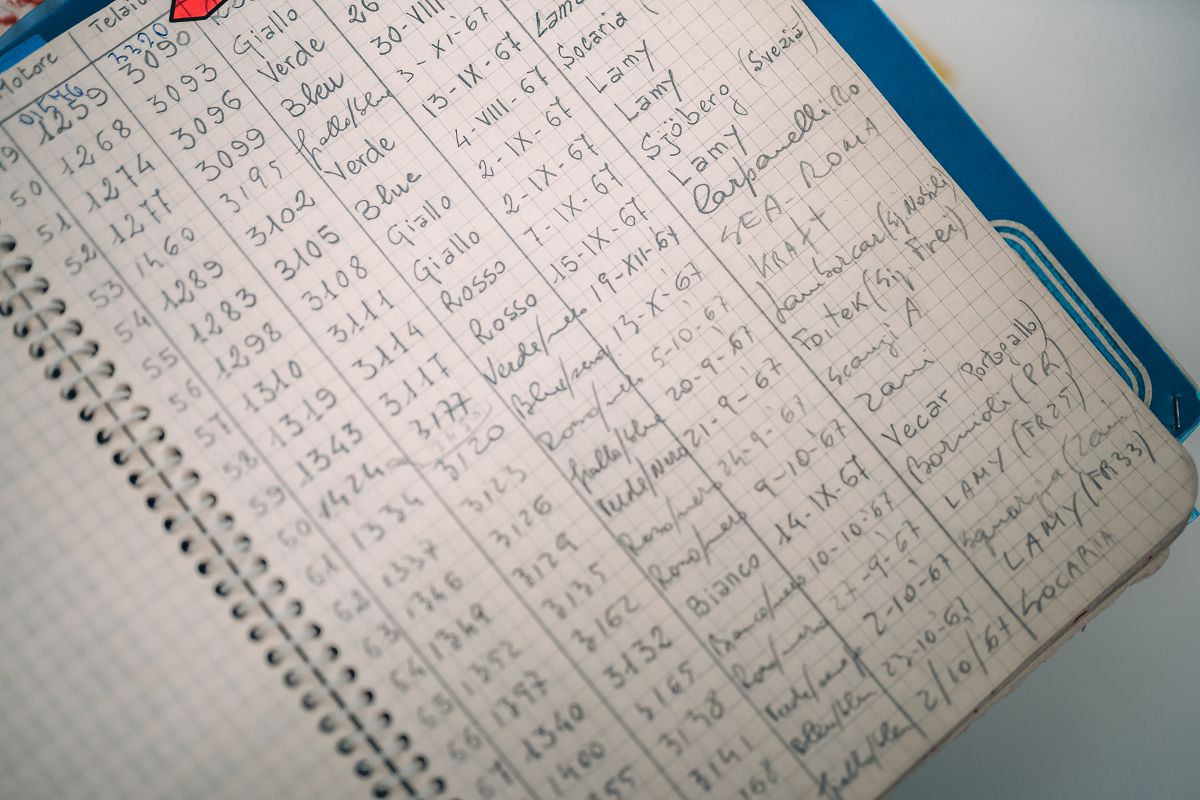 Motore Telaio
01576 3320
1259 3090
50 1268 3093 Giallo
51 1274 3096 Verde 26
52 1277 3099 Bleu 30-VIII
53 1460 3195 giallo/blu 3-XI-67
54 1289 3102 Verde 13-IX-67
55 1283 3105 Blue 4-VIII-67 Socaria
56 1298 3108 Giallo 2-IX-67 Lamy
57 1310 3111 Giallo 2-IX-67 Lamy
58 1319 3114 Rosso 7-IX-67 Sjöberg (Svezia)
59 1343 3117 Rosso 15-IX-67 Lamy
60 1424 3177 Verde/nero 19-XII-67 Carpanelli Ro
61 1334 3120 13-X-67 SEA-ROMA
62 1337 3123 Rosso/nero 5-10-67
63 1346 3126 giallo/blu 20-9-67 Lamborcar
64 1349 3129 Verde/nero 21-9-67 Foitek (Sig. Frei)
65 1352 3135 Rosso/nero 24-9-67
66 1397 3162 Rosso/nero 9-10-67 Zani
67 1340 3132 Bianco 14-IX-67 Vecar Portogallo)
1400 3165 Bianco/nero 10-10-67 Bormioli (PR)
55 3138 Rosso/nero 27-9-67 LAMY (FR25)
3141 2-10-67
168 Bleu/bleu 23-10-67 LAMY (FR33)
2/10/67 SOCARIA